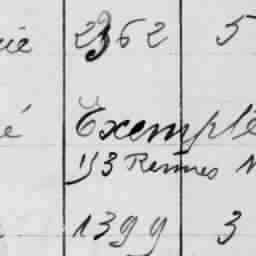 cie 2362 5
é Exempté
113 Rennes
1399 3